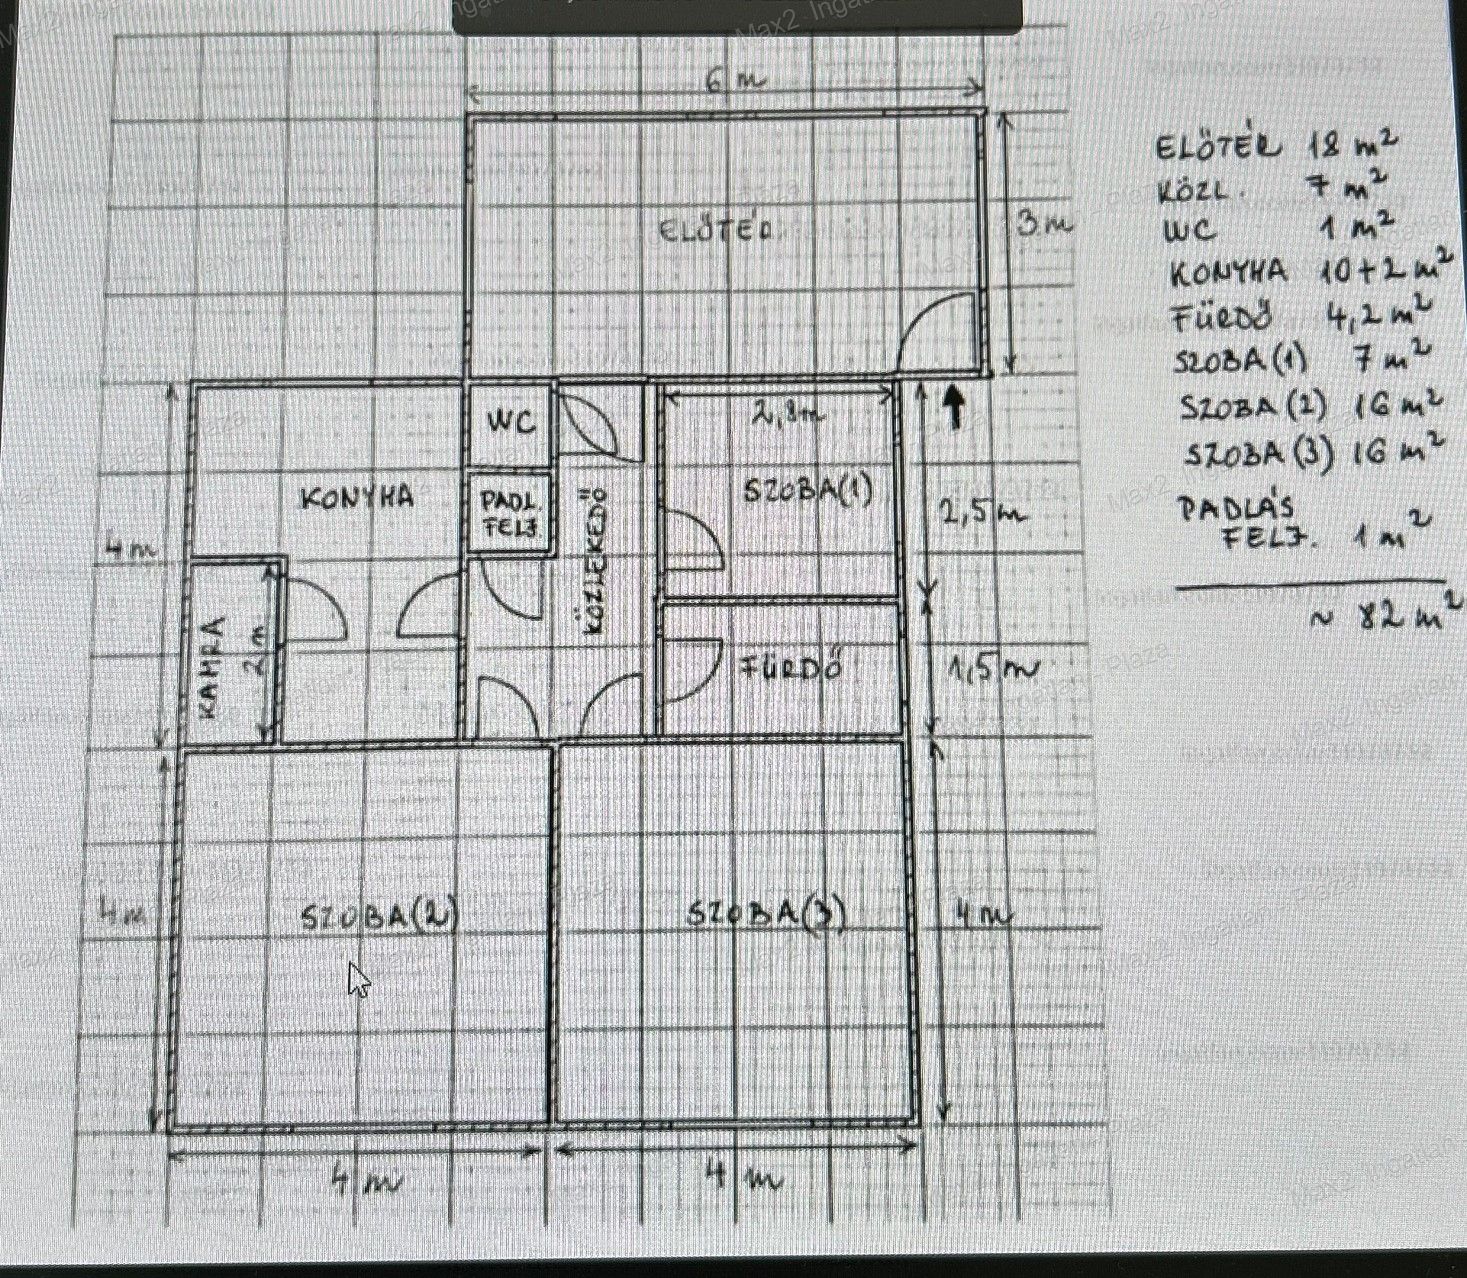 6 m
ELŐTÉR
3 m
WC
2,8m
KONYHA
PADL.
FELJ.
KÖZLEKEDŐ
SZOBA(1)
2,5 m
4 m
KAMRA
2 m
FÜRDŐ
1,5 m
SZOBA(2)
SZOBA(3)
4 m
4 m
4 m
4 m
ELŐTÉR 18 m²
KÖZL. 7 m²
WC 1 m²
KONYHA 10+2 m²
FÜRDŐ 4,2 m²
SZOBA(1) 7 m²
SZOBA(2) 16 m²
SZOBA(3) 16 m²
PADLÁS
FELJ. 1 m²
~ 82 m²